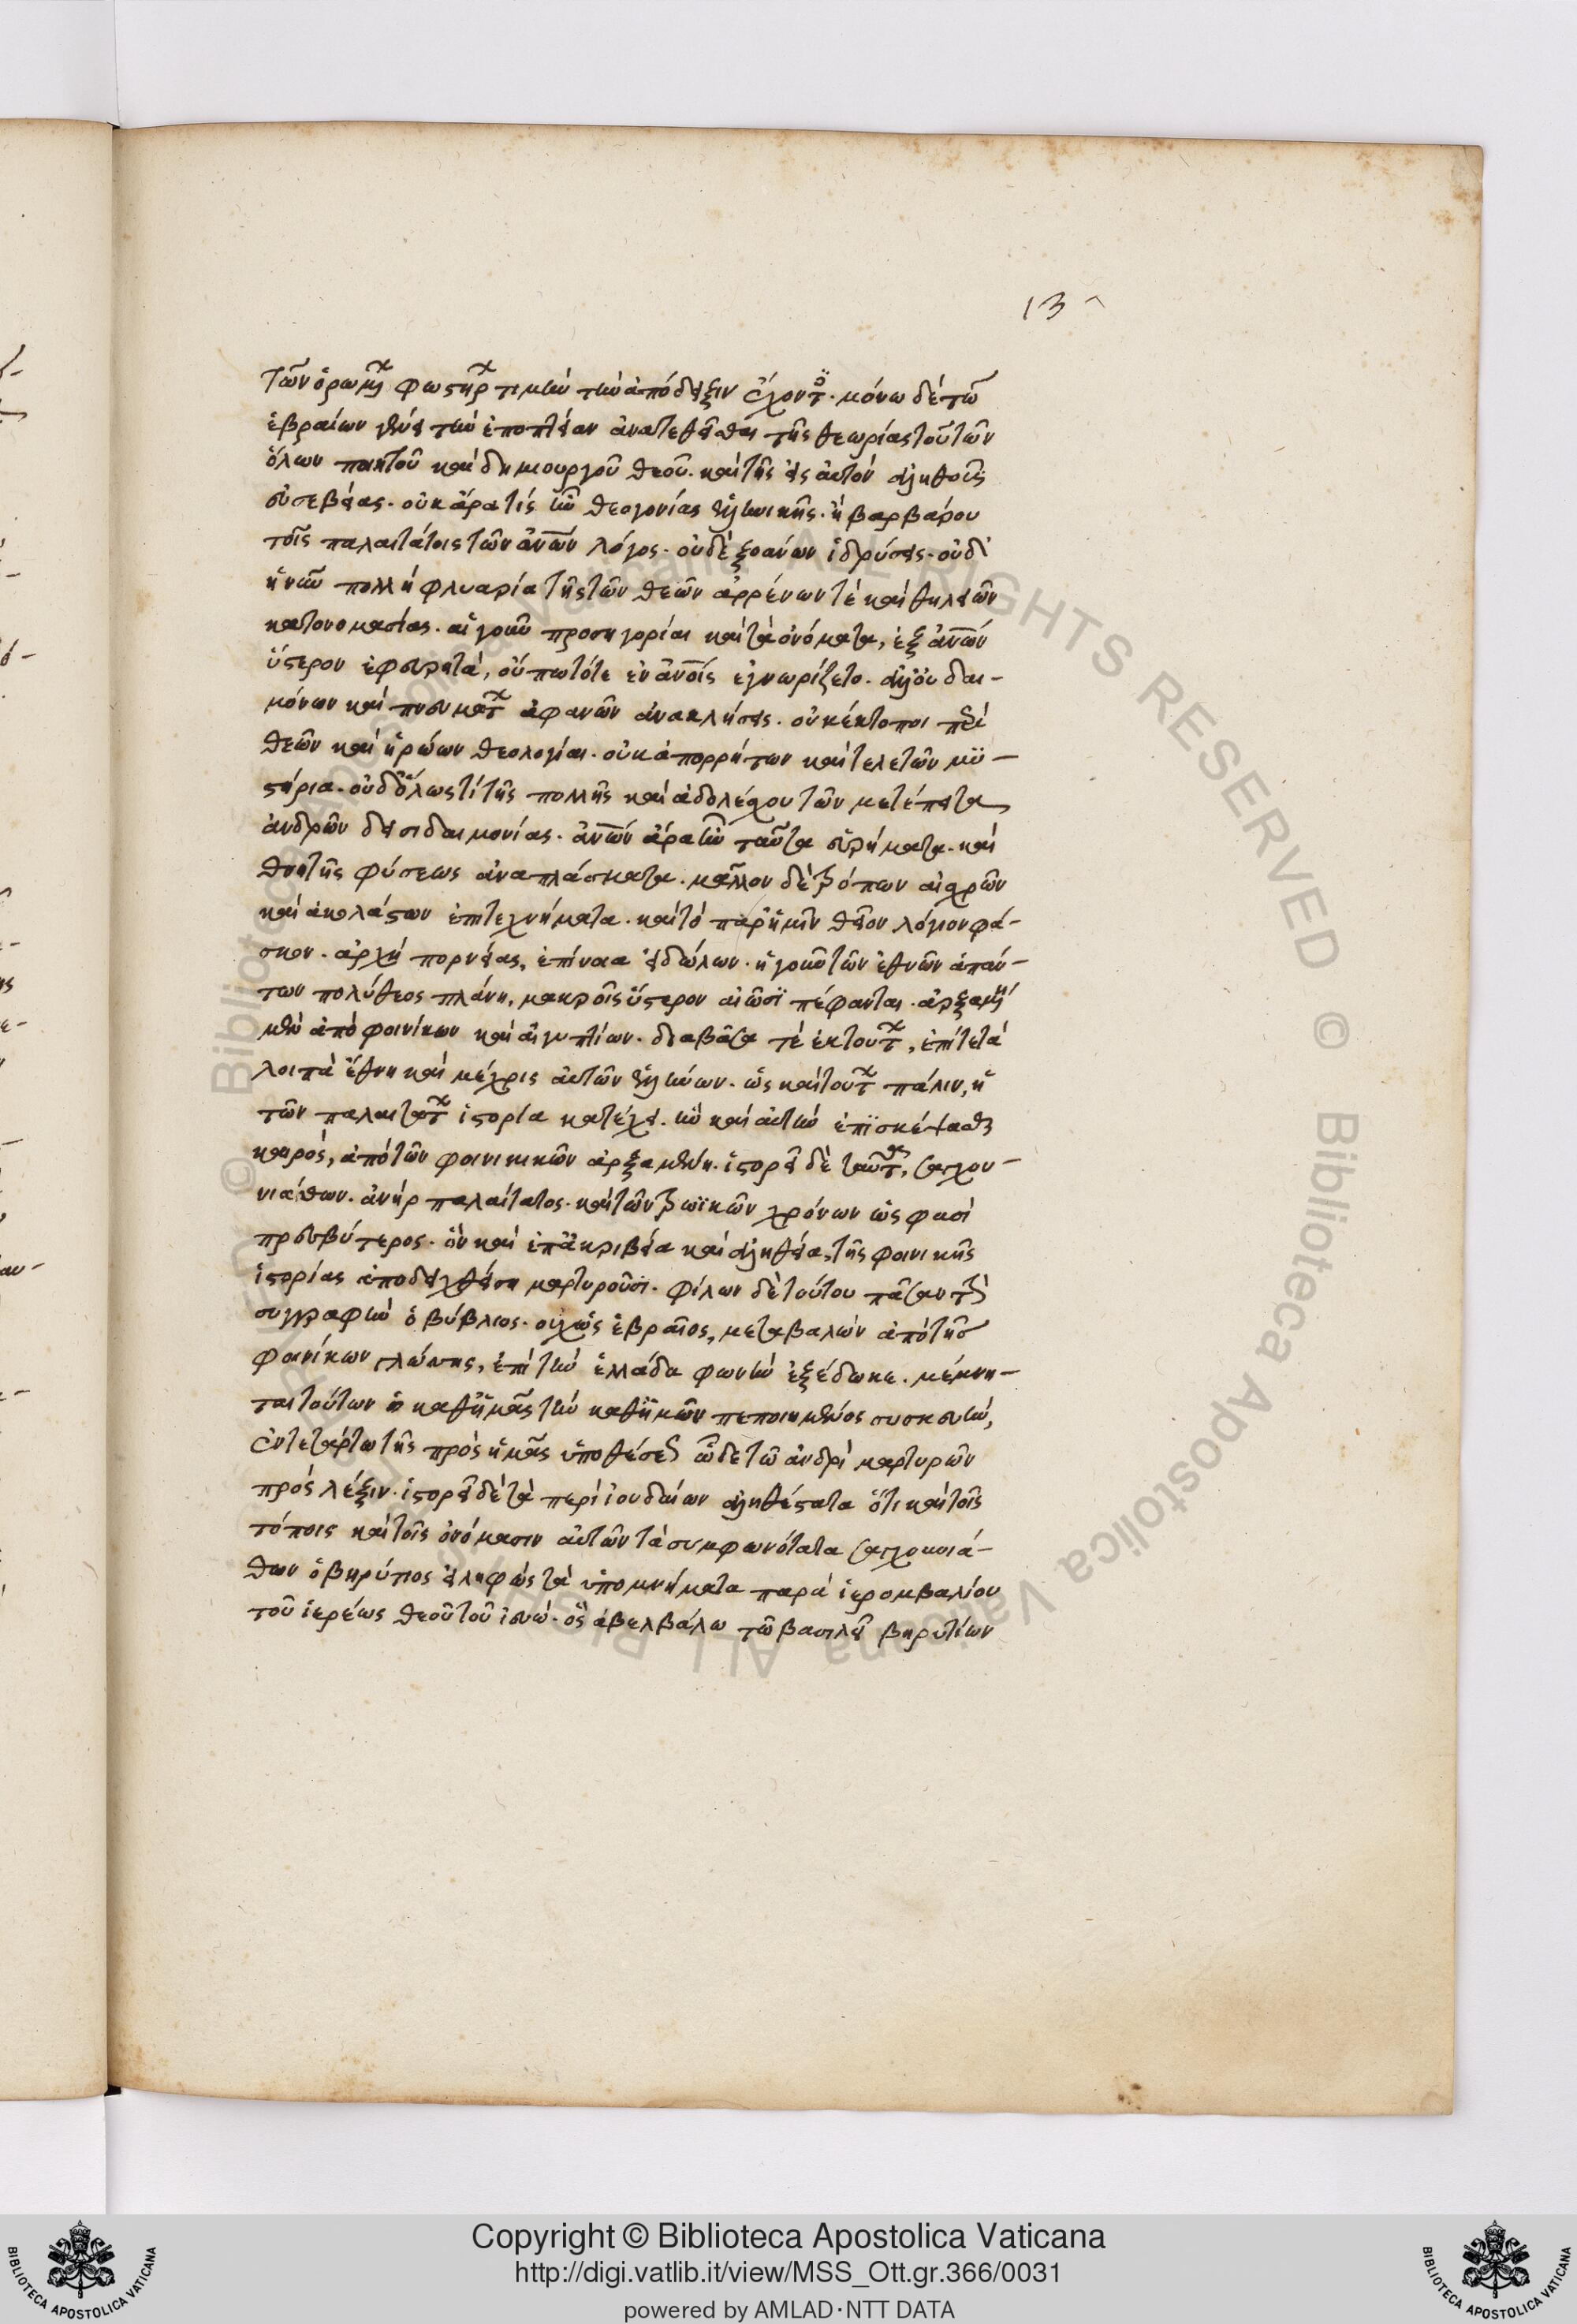 13
τῶν ὁρωμένων φωστήρων τιμὴν τὴν ἀπόδειξιν ἔχοντος. μόνω δὲ τῶ
ἑβραίων γένει τὴν ἐποπτείαν ἀνατεθεῖσθαι τῆς θεωρίας τοῦ τῶν
ὅλων ποιητοῦ καὶ δημιουργοῦ θεοῦ. καὶ τῆς εἰς αὐτὸν ἀληθοῦς
εὐσεβείας. οὐκ ἄρα τίς ἦν θεογονίας ἑλληνικῆς. ἢ βαρβάρου
τοῖς παλαιτάτοις τῶν ἀνῶν λόγος. οὐδὲ ξοάνων ἱδρύσεις. οὐδ'
ἡ νῦν πολλὴ φλυαρία τῆς τῶν θεῶν ἀρρένων τὲ καὶ θηλειῶν
κατονομασίας. αἱ γοῦν προσηγορίαι καὶ τὰ ὀνόματα, ἐξ ἀνῶν
ὕστερον ἐφευρετὰ, οὔπω τότε ἐν ἀνοις ἐγνωρίζετο. ἀλλ' οὐ δαι-
μόνων καὶ πνευμάτων ἀφανῶν ἀνακλήσεις. οὐκ ἔκτοποι περὶ
θεῶν καὶ ἡρώων θεολογίαι. οὐκ ἀπορρήτων καὶ τελετῶν μϋ-
στήρια. οὐδ' ὅλως τὶ τῆς πολλῆς καὶ ἀδολέσχου τῶν μετέπειτα
ἀνδρῶν δεισιδαιμονίας. ἀνῶν ἄρα ἦν ταῦτα εὑρήματα. καὶ
θνητῆς φύσεως ἀναπλάσματα. μᾶλλον δὲ τρόπων αἰσχρῶν
καὶ ἀκολάστων ἐπιτεχνήματα. κατὰ τὸ παρ' ἡμῖν θεῖον λόγιον φά-
σκον. ἀρχὴ πορνείας, ἐπίνοια εἰδώλων. ἡ γοῦν τῶν ἐθνῶν ἁπάν-
των πολύθεος πλάνη, μακροῖς ὕστερον αἰῶσϊ πέφανται. ἀρξαμένη
μὲν ἀπὸ φοινίκων καὶ αἰγυπτίων. διαβᾶσα τὲ ἐκ τούτων, ἐπί τε τὰ
λοιπὰ ἔθνη καὶ μέχρις αὐτῶν ἑλλήνων. ὡς καὶ τούτων πάλιν, ἡ
τῶν παλαιτάτων ἱστορία κατέχει. ἣν καὶ αὐτὴν ἐπϊσκέψασθαι
καιρὸς, ἀπὸ τῶν φοινικικῶν ἀρξαμένην. ἱστορεῖ δὲ ταῦτα, σαγχου-
νιάθων. ἀνὴρ παλαίτατος. καὶ τῶν τρωϊκῶν χρόνων ὥς φασὶ
πρεσβύτερος. ὃν καὶ ἐπ' ἀκριβεία καὶ ἀληθεία, τῆς φοινικικῆς
ἱστορίας ἀποδειχθῆναι μαρτυροῦσι. φίλων δὲ τούτου πᾶσαν τὴν
συγγραφὴν ὁ βύβλιος. οὐχ ὡς ἑβραῖος, μεταβαλὼν ἀπὸ τῆς
φοινίκων γλώττης, ἐπὶ τὴν ἑλλάδα φωνὴν ἐξέδωκε. μέμνη-
ται τούτων ὁ καθ' ἡμᾶς τὴν καθ' ἡμῶν πεποιημένος συσκευὴν,
ἐν τετάρτω τῆς πρὸς ἡμᾶς ὑποθέσεως ὧδε τῶ ἀνδρὶ μαρτυρῶν
πρὸς λέξιν. ἱστορεῖ δὲ τὰ περὶ ἰουδαίων ἀληθέστατα ὅτι καὶ τοῖς
τόποις καὶ τοῖς ὀνόμασιν αὐτῶν τὰ συμφωνότατα σαγχουνιά-
θων ὁ βηρύτιος εἰληφὼς τὰ ὑπομνήματα παρὰ ἱερομβαλίου
τοῦ ἱερέως θεοῦ τοῦ ἰευώ. ὃς ἀβελβάλω τῶ βασιλεῖ βηρυτίων
Copyright © Biblioteca Apostolica Vaticana
http://digi.vatlib.it/view/MSS_Ott.gr.366/0031
powered by AMLAD·NTT DATA
BIBLIOTECA APOSTOLICA VATICANA
BIBLIOTECA APOSTOLICA VATICANA